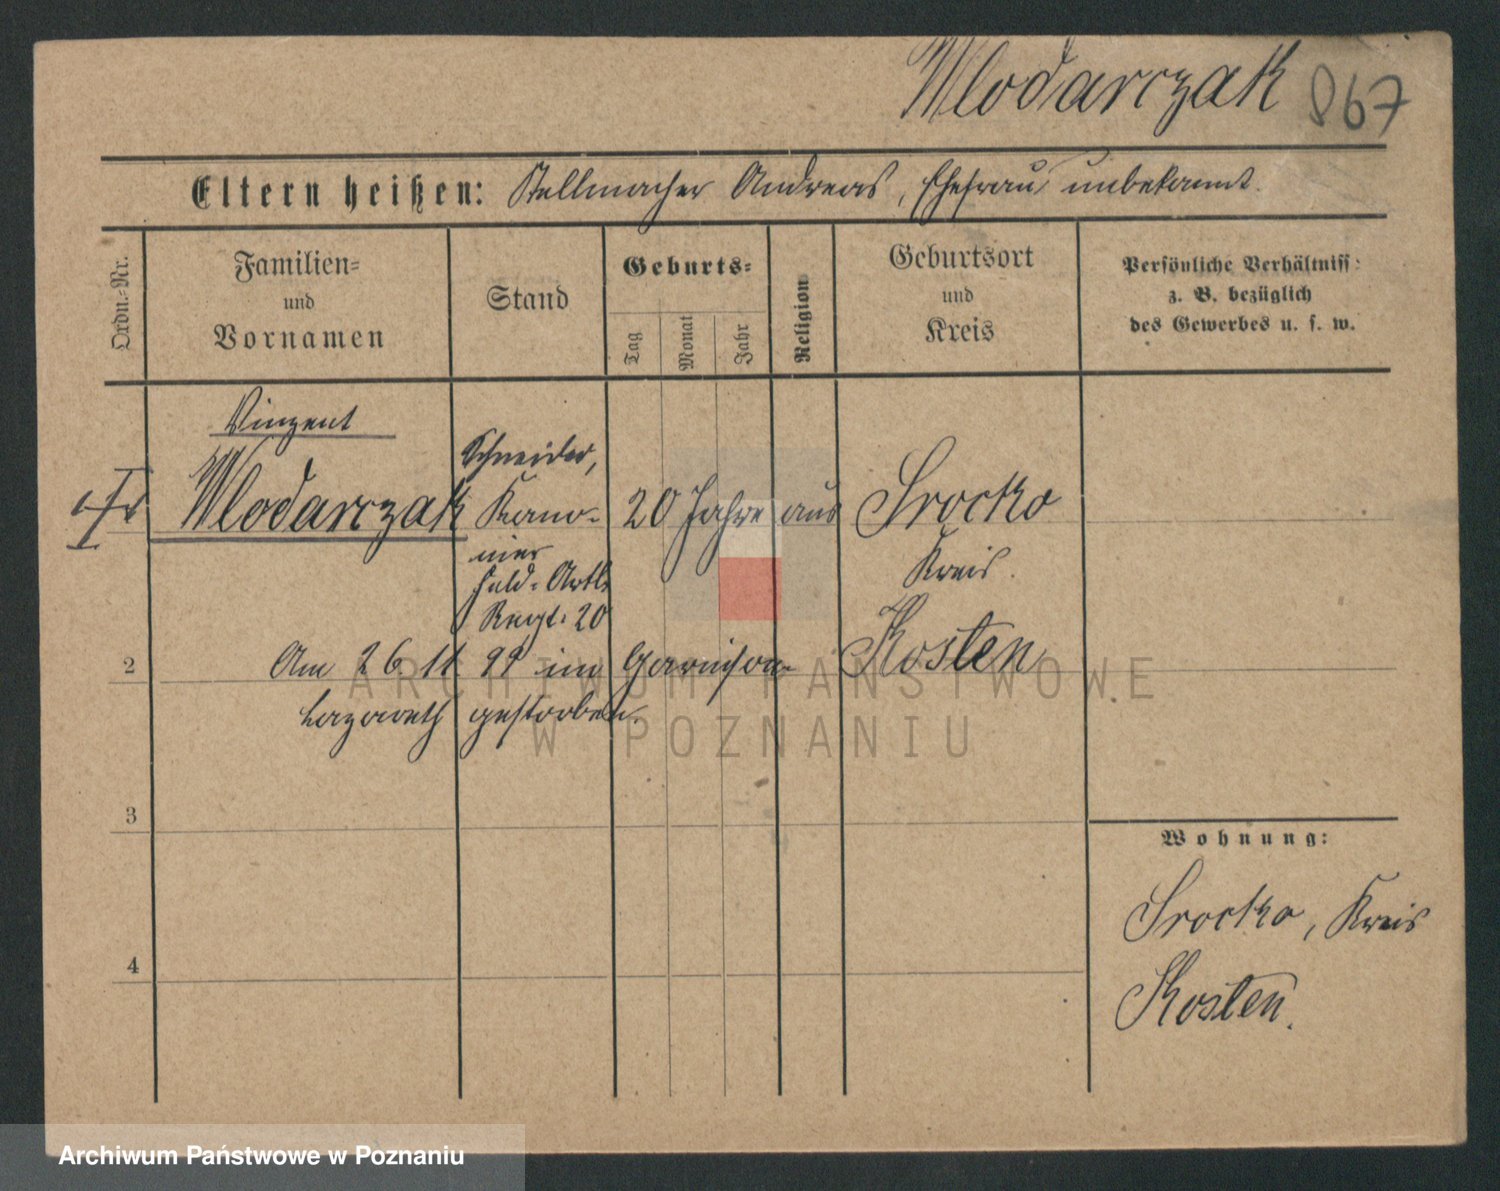 Wlodarczak 867
Eltern heißen: Stellmacher Andreas, Ehefrau unbekannt.
Ordn.-Nr.
Familien-
und
Vornamen
Stand
Geburts-
Tag
Monat
Jahr
Religion
Geburtsort
und
Kreis
Persönliche Verhältniss:
z. B. bezüglich
des Gewerbes u. s. w.
Vinzent
Wlodarczak
Schneider,
Kano-
nier
Feld-Artl.
Regt. 20
20 Jahre aus Srocko
Kreis
Kosten
2
Am 26. 11 99 im Garnison-
Lazareth gestorben.
3
4
Wohnung:
Srocko, Kreis
Kosten.
ARCHIWUM PAŃSTWOWE
W POZNANIU
Archiwum Państwowe w Poznaniu